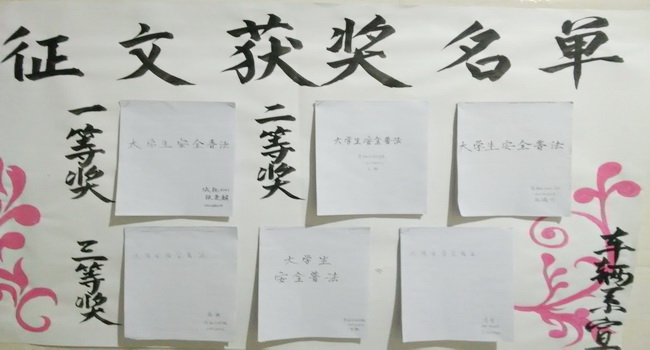 征文获奖名单
一等奖
大学生安全普法
二等奖
大学生安全普法
大学生安全普法
三等奖
大学生安全普法
大学生
安全普法
大学生安全普法
车辆系宣